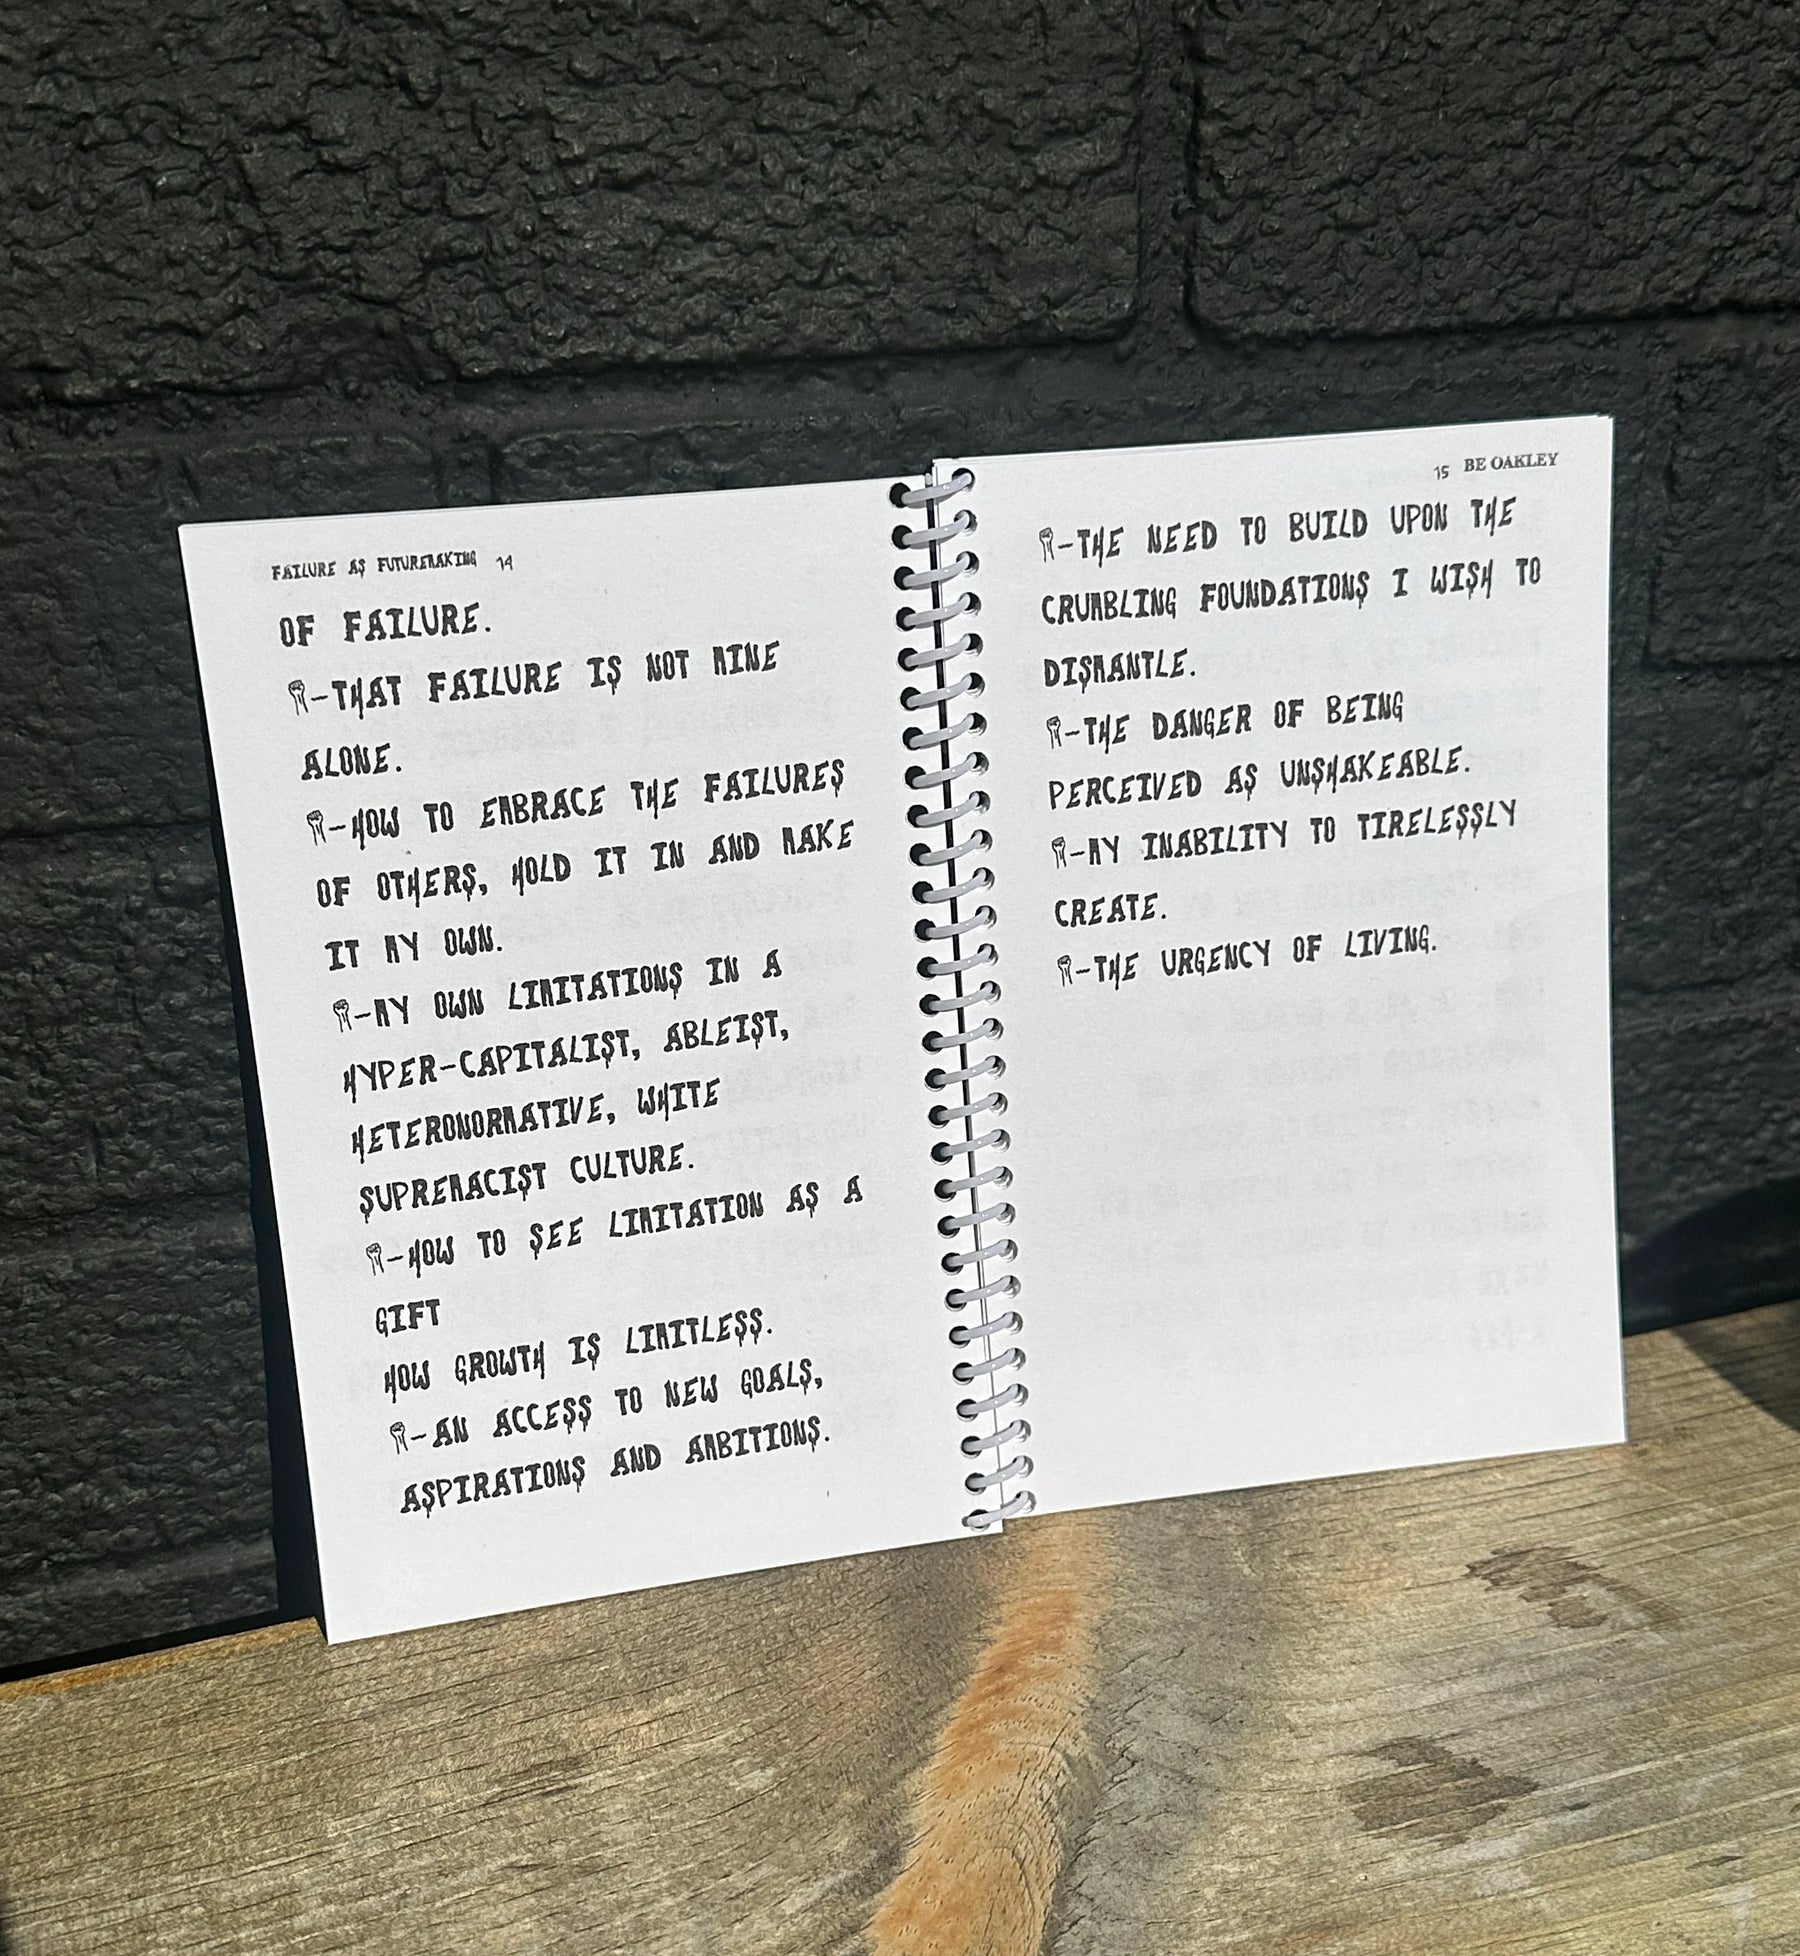 FAILURE AS FUTUREMAKING 14
OF FAILURE.
-THAT FAILURE IS NOT MINE
ALONE.
-HOW TO EMBRACE THE FAILURES
OF OTHERS, HOLD IT IN AND MAKE
IT MY OWN.
-MY OWN LIMITATIONS IN A
HYPER-CAPITALIST, ABLEIST,
HETERONORMATIVE, WHITE
SUPREMACIST CULTURE.
-HOW TO SEE LIMITATION AS A
GIFT
HOW GROWTH IS LIMITLESS.
-AN ACCESS TO NEW GOALS,
ASPIRATIONS AND AMBITIONS.
15 BE OAKLEY
-THE NEED TO BUILD UPON THE
CRUMBLING FOUNDATIONS I WISH TO
DISMANTLE.
-THE DANGER OF BEING
PERCEIVED AS UNSHAKEABLE.
-MY INABILITY TO TIRELESSLY
CREATE.
-THE URGENCY OF LIVING.